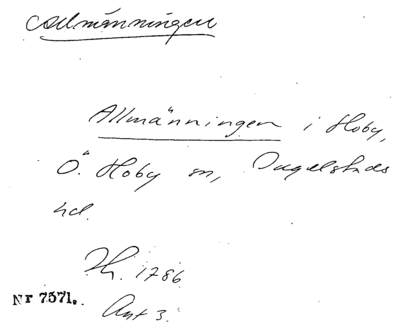 Allmänningen
Allmänningen i Hoby,
Ö. Hoby sn, Ingelstads
hd.
Jh. 1786
Nr 7571.
Akt 3.